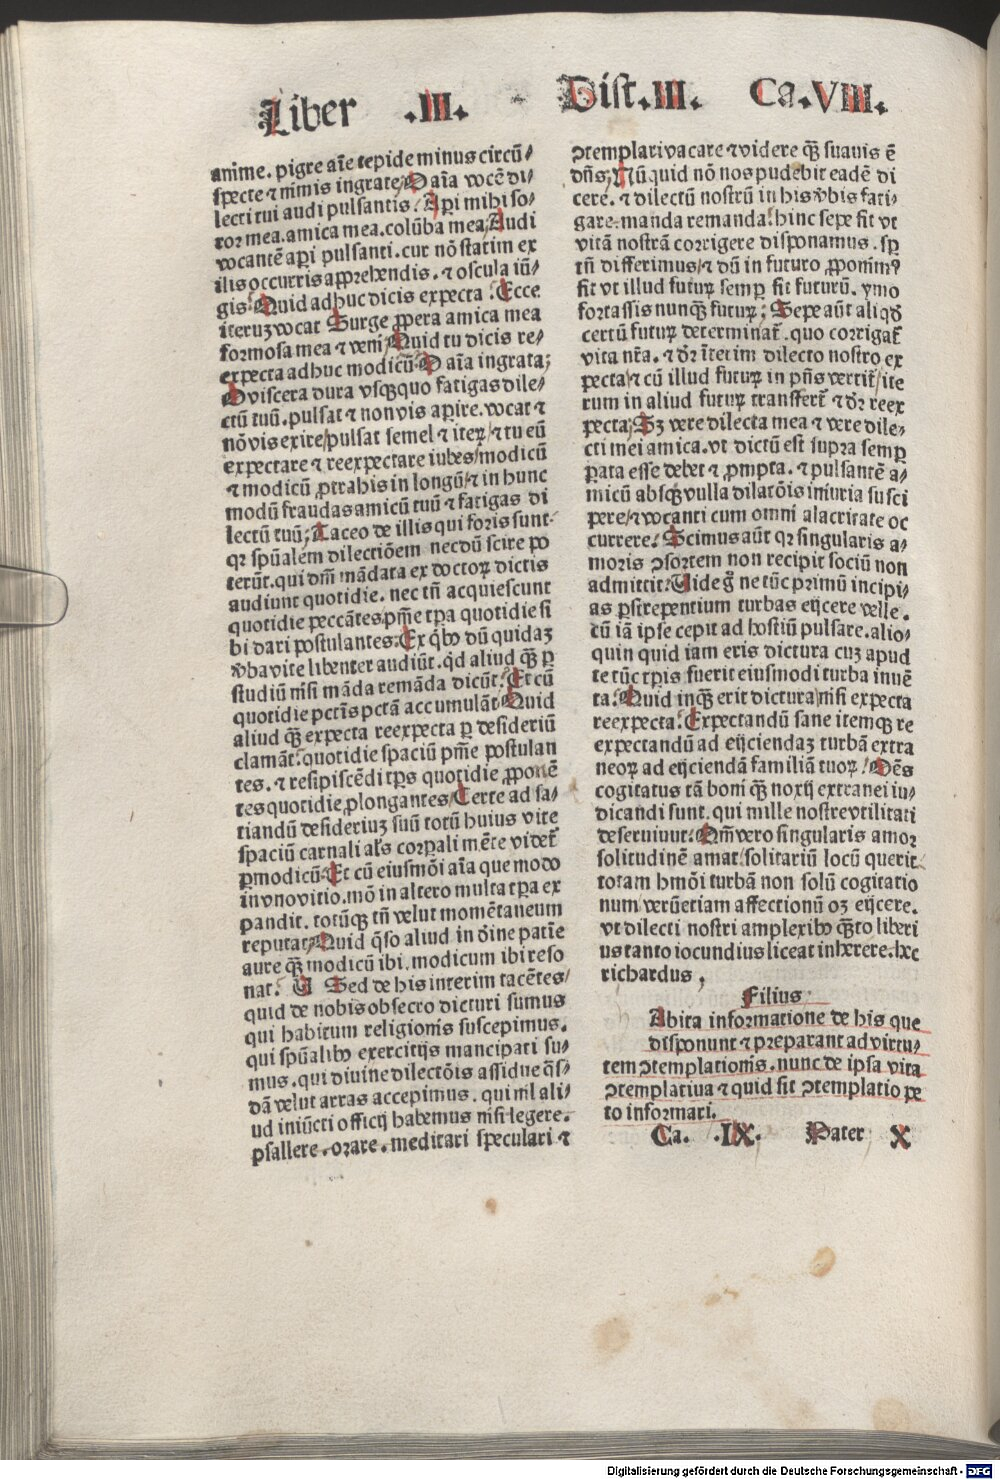 Liber .III. Dist.III. Ca.VIII.
anime. pigre aīe tepide minus circū/
specte ⁊ nimis ingrate; O aīa vocē di/
lecti tui audi pulsantis. Aperi mihi so/
ror mea. amica mea. colūba mea; Audi
vocantē aꝑi pulsanti. cur nō statim ex
ilis occurris apprehendis. ⁊ oscula iū/
gis. Quid adhuc dicis expecta. Ecce
iteruꝫ vocat Surge ꝓpera amica mea
formosa mea ⁊ veni; Quid tu dicis re/
expecta adhuc modicū. O aīa ingrata;
O viscera dura vsqꝫ quo fatigas dile/
ctū tuū. pulsat ⁊ non vis aperire. vocat ⁊
nō vis exire/ pulsat semel ⁊ iteꝝ/ ⁊ tu eū
expectare ⁊ reexpectare iubes/ modicū
⁊ modicū ꝓtrahis in longū/ ⁊ in hunc
modū fraudas amicū tuū ⁊ fatigas di
lectū tuū; Taceo de illis qui foris sunt.
qꝛ spūalem dilectiōem necdū scire po
terūt. qui dn̄i mādata ex doctoꝝ dictis
audiunt quotidie. nec tn̄ acquiescunt
quotidie peccātes pn̄ie tꝑa quotidie si
bi dari postulantes. Ex qͥbꝰ dū quidaꝫ
v̄ba vite libenter audiūt. qͥd aliud qꝫ̄ ꝑ
studiū nisi māda remāda dicūt. Et cū
quotidie pctīs pctā accumulāt Quid
aliud qꝫ̄ expecta reexpecta ꝑ desideriū
clamāt. quotidie spaciū pn̄ie postulan
tes. ⁊ resipiscēdi tꝑs quotidie ꝓponē
tes quotidie ꝓlongantes/ Certe ad sa/
tiandū desideriuꝫ suū totū huius vite
spaciū carnali al̄s corꝑali mēte videt̄
ꝑmodicū. Et cū eiusmōi aīa que modo
in vno vitio. mō in altero multa tꝑa ex
pandit. totūqꝫ tn̄ velut momētaneum
reputat; Quid qͣso aliud in oīne patīe
aure qꝫ̄ modicū ibi. modicum ibi reso
nat. ¶ Sed de his interim tacētes/
quid de nobis obsecro dicturi sumus
qui habitum religionis suscepimus.
qui spūalibꝰ exercitijs mancipati su/
mus. qui diuine dilectōis assidue qͣs/
dā velut arras accepimus. qui nil ali/
ud iniūcti officij habemus nisi legere.
psallere. orare. meditari speculari ⁊
ↄtemplari vacare ⁊ videre qꝫ̄ suauis ē
dn̄s; Nūquid nō nos pudebit eadē di
cere. ⁊ dilectū nostrū in his v̄bis fati/
gare. manda remanda. hinc sepe fit vt
vitā nostrā corrigere disponamus. sꝑ
tn̄ differimus/ ⁊ dū in futuro ꝓponimꝰ
fit vt illud futuꝝ semꝑ fit futurū. ymo
fortassis nunqꝫ̄ futuꝝ; Sepe aūt aliqd̄
certū futuꝝ determinat̄. quo corrigat̄
vita nr̄a. ⁊ dr̄ īterim dilecto nostro ex
pecta/ ⁊ cū illud futuꝝ in pn̄s vertit̄/ ite
rum in aliud futuꝝ transfert̄ ⁊ dr̄ reex
pecta; Sꝫ vere dilecta mea ⁊ vere dile/
cti mei amica. vt dictū est supra semꝑ
ꝑata esse debet ⁊ ꝓmpta. ⁊ pulsantē a/
micū absqꝫ vlla dilatōis iniuria susci
pere/ ⁊ vocanti cum omni alacritate oc
currere. Scimus aūt qꝛ singularis a/
moris ↄsortem non recipit sociū non
admittit. Uide gͦ ne tūc primū incipi/
as ꝑstrepentium turbas eijcere velle.
cū iā ipse cepit ad hostiū pulsare. alio/
quin quid iam eris dictura cuꝫ apud
te tūc tꝑis fuerit eiusmodi turba inuē
ta. Quid inqꝫ̄ erit dictura/ nisi expecta
reexpecta. Expectandū sane itemqꝫ re
expectandū ad eijciendaꝫ turbā extra
neoꝝ ad eijciendā familiā tuoꝝ. Oēs
cogitatus tā boni qꝫ̄ noxij extranei iu/
dicandi sunt. qui mille nostre vtilitati
deseruiunt. Qm̄ vero singularis amor
solitudinē amat/ solitariū locū querit
totam hmōi turbā non solū cogitatio
num verūetiam affectionū oꝫ eijcere.
vt dilecti nostri amplexibꝰ qꝫ̄to liberi
us tanto iocundius liceat inherere. hec
richardus,
Filius
Abita informatione de his que
disponunt ⁊ preparant ad virtu/
tem ↄtemplationis. nunc de ipsa vita
ↄtemplatiua ⁊ quid sit ↄtemplatio pe
to informari.
Ca. .IX. Pater X
Digitalisierung gefördert durch die Deutsche Forschungsgemeinschaft - DFG